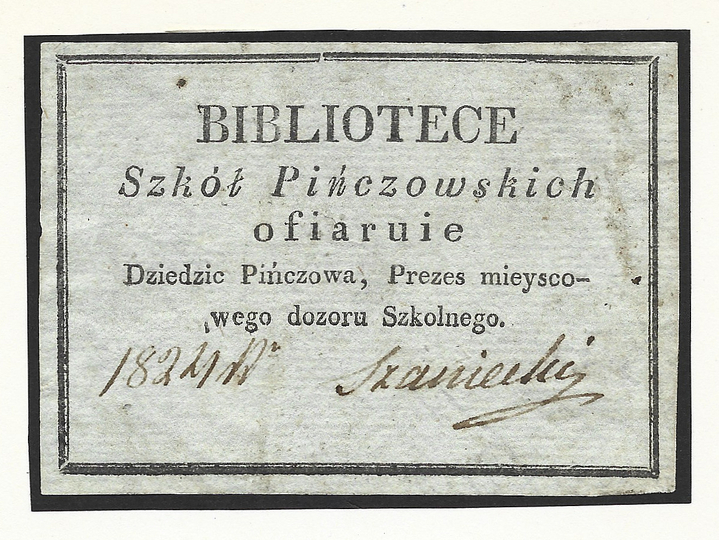 BIBLIOTECE
Szkół Pińczowskich
ofiaruie
Dziedzic Pińczowa, Prezes mieysco-
wego dozoru Szkolnego.
1824 Rº Szaniecki